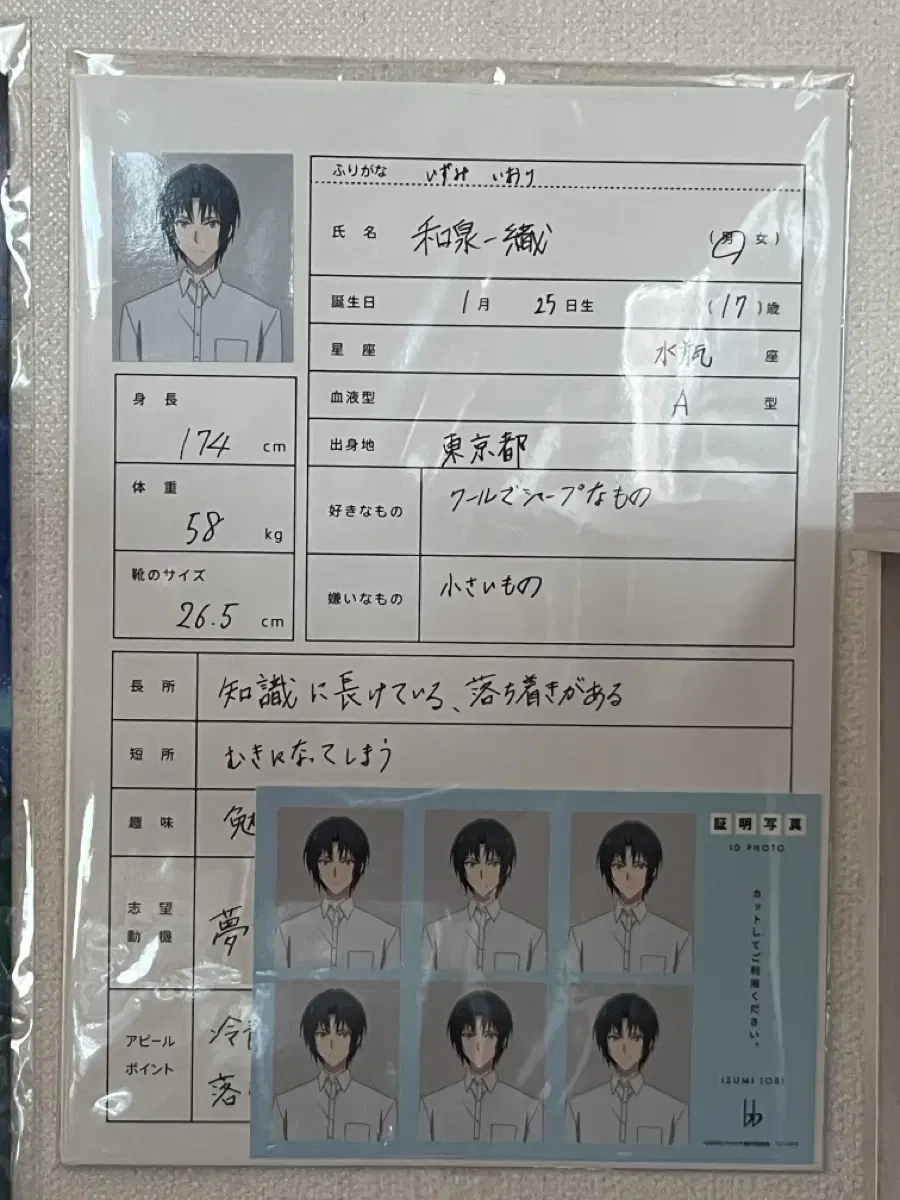 ふりがな いずみ いおり
氏名 和泉一織 (男 女)
誕生日 1月 25日生 (17)歳
星座 水瓶 座
血液型 A 型
出身地 東京都
好きなもの クールでシャープなもの
嫌いなもの 小さいもの
身長
174 cm
体重
58 kg
靴のサイズ
26.5 cm
長所 知識に長けている、落ち着きがある
短所 むきになってしまう
趣味 勉
志望動機 夢
アピールポイント 冷
落
証明写真
ID PHOTO
カットしてご利用ください。
IZUMI IORI